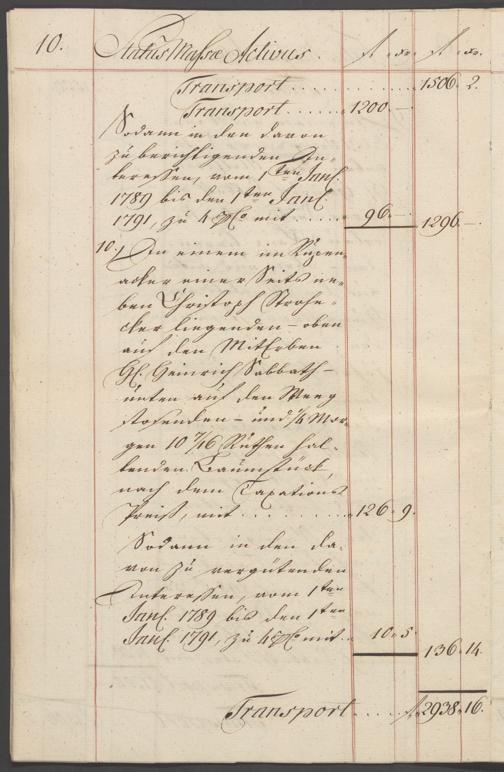 10. Status Massæ Activus. fl. xr. fl. xr.
Transport . . . . . . . . 1506. 2.
Transport . . . . . 1200. —
Sodann in den davon
zu berichtigenden In-
teressen, vom 1ten Janl.
1789 bis den 1ten Janl.
1791, zu 4 pCto mit . . . . 96. — 1296. —
10.) In einem im
acker einer Seits ne-
ben Christoph Strohe-
cker liegenden - oben
auf den MitErben
H. Heinrich Sabbath -
unten auf den Weeg
stosenden - und 1/4 Mor-
gen 10 7/16 Ruthen hal-
tenden Baumstück,
nach dem Taxations
Preiß, mit . . . . . . . 126. 9.
Sodann in den da-
von zu vergütenden
Interessen, vom 1ten
Janl. 1789 bis den 1ten
Janl. 1791, zu 4 pCto mit . . 10. 5. 136. 14.
Transport . . . . fl. 2938. 16.